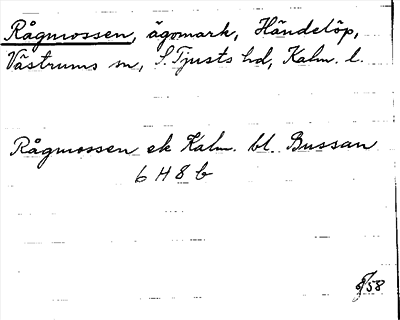 Rågmossen, ägomark, Händelöp,
Västrums sn, S. Tjusts hd, Kalm. l.
Rågmossen ek Kalm. bl. Bussan
6 H 8 b
8/58